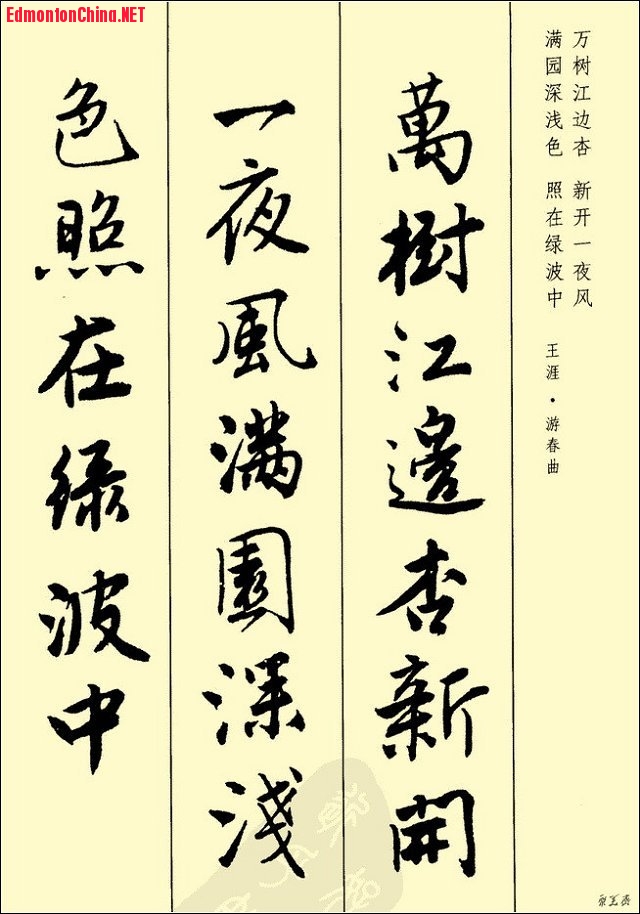 EdmontonChina.NET
万树江边杏 新开一夜风
满园深浅色 照在绿波中
王涯·游春曲
萬樹江邊杏新開
一夜風滿園深淺
色照在綠波中